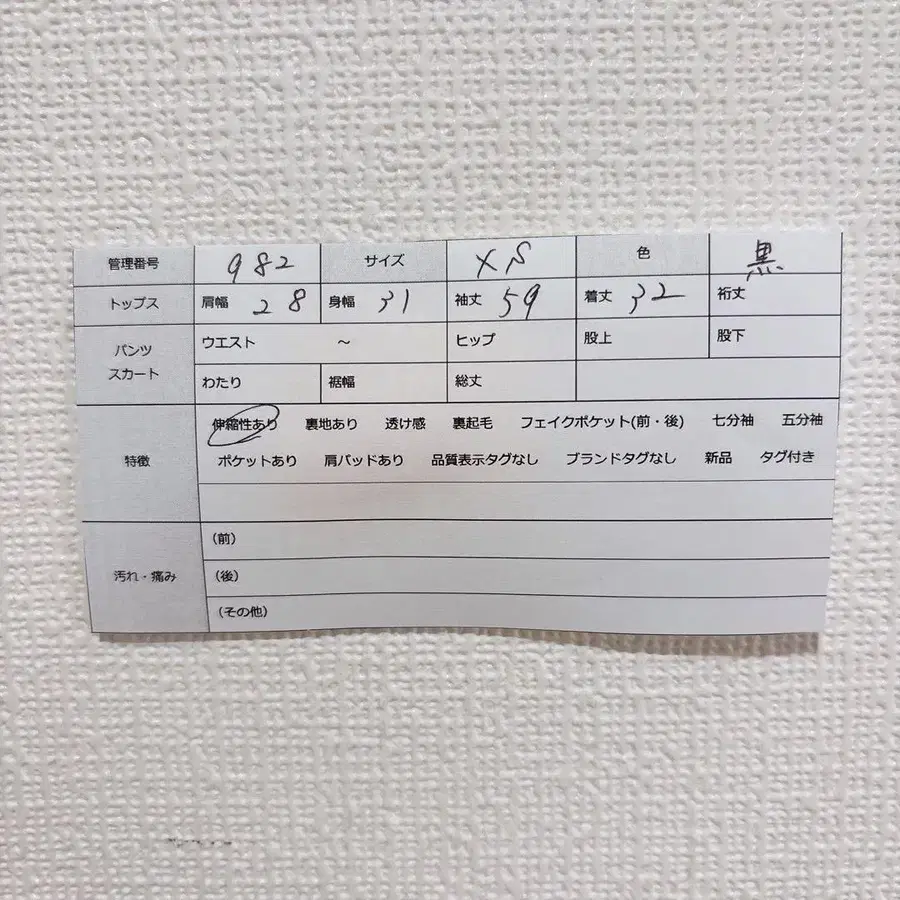 管理番号 982 サイズ XS 色 黒
トップス 肩幅 28 身幅 31 袖丈 59 着丈 32 裄丈
パンツ スカート ウエスト ～ ヒップ 股上 股下
わたり 裾幅 総丈
特徴 伸縮性あり 裏地あり 透け感 裏起毛 フェイクポケット(前・後) 七分袖 五分袖
ポケットあり 肩パッドあり 品質表示タグなし ブランドタグなし 新品 タグ付き
汚れ・痛み (前)
(後)
(その他)